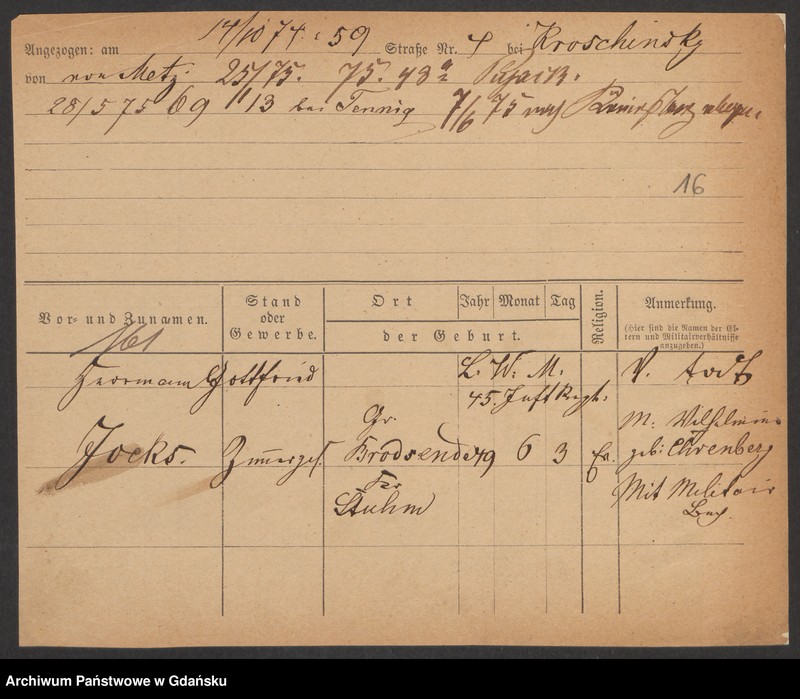 Angezogen: am 14/10 74 : 59 Straße Nr. 4 bei Kroschinsky
von von Metz. 25/ 75. 75. 43
28/5 75 69 13 bei Tennig 7/6 75 nach
16
Vor- und Zunamen. Stand oder Gewerbe. Ort Jahr Monat Tag der Geburt. Religion. Anmerkung. (Hier sind die Namen der Eltern und Militairverhältnisse anzugeben.)
161
Herrmann Gottfried L. W. M. V. todt
45. Inft Regt.
Jocks. Zimmerges. Gr. Brodsende 49 6 3 Ev. M: Wilhelmine
geb: Ehrenberg
Stuhm Mit Militair
Archiwum Państwowe w Gdańsku